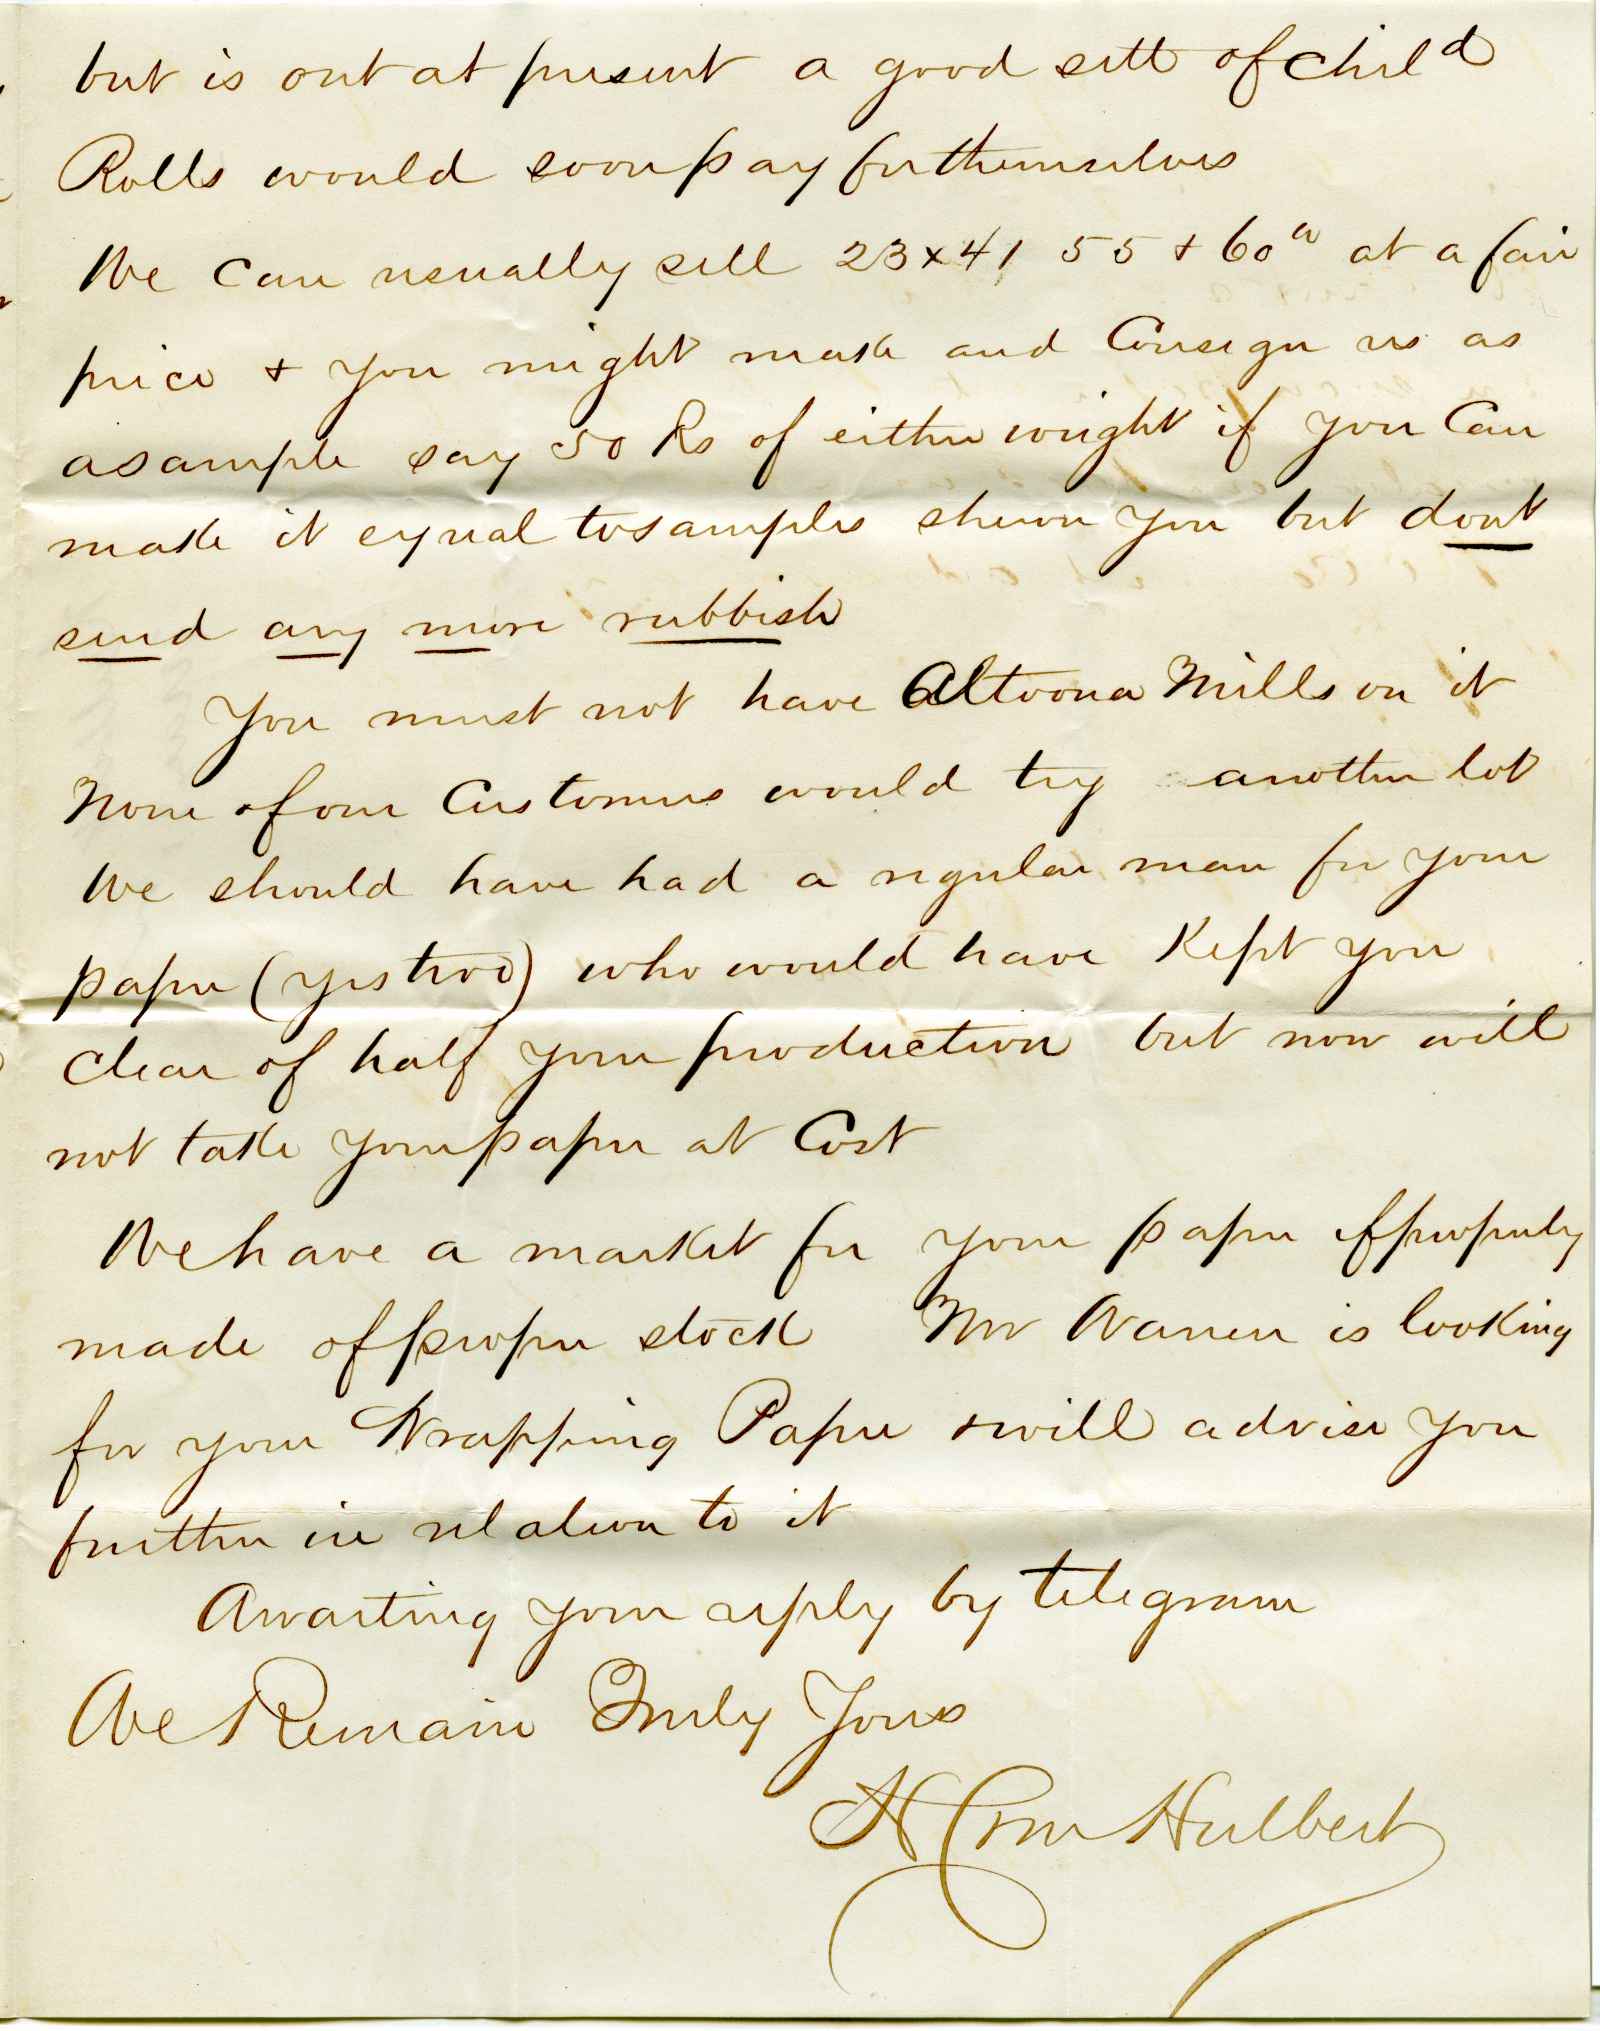 but is out at present a good sett of chil^d
Rolls would soon pay for themselves
We can usually sell 23 x 41 55 + 60 at a fair
price + you might make and Consign us as
a sample say 50 Rs of either weight if you Can
make it equal to samples shewn you but dont
send any more rubbish
You must not have Altoona Mills on it
None of our Customers would try another lot
We should have had a regular man for your
paper (yes two) who would have Kept you
Clear of half your production but now will
not take your paper at Cost
We have a market for your paper if properly
made of proper stock Mr Warren is looking
for your Wrapping Paper + will advise you
further in relation to it
Awaiting your reply by telegram
We Remain Truly Yours
Hulbert